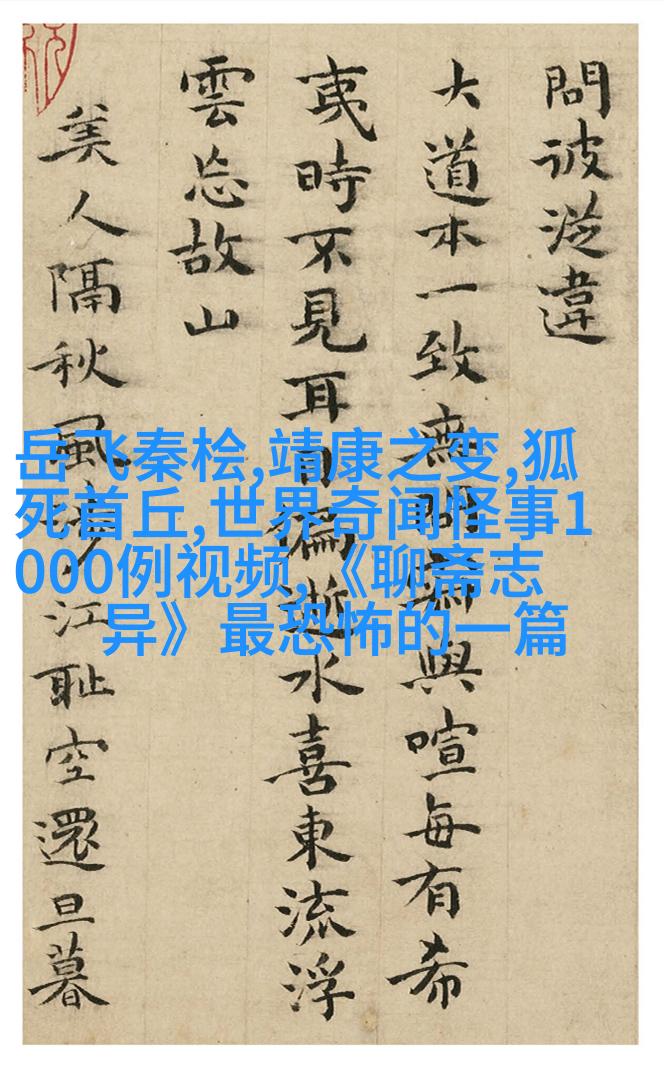 問彼違
大道本一致無與喧每有希
夷時不見耳目逝水喜東流浮
雲忘故山
美人隔秋風江恥空還旦暮
岳飞秦桧,靖康之变,狐
死首丘,世界奇闻怪事1
000例视频,《聊斋志
异》最恐怖的一篇